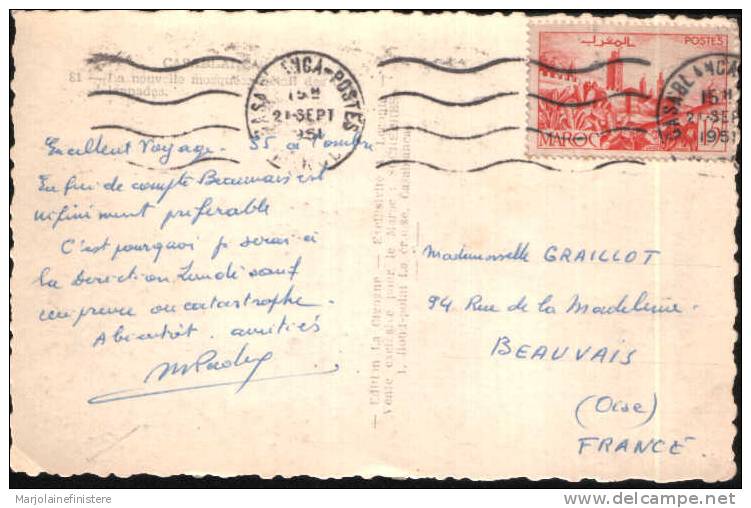 CASABLANCA
81 — La nouvelle mosquée
CASABLANCA-POSTES
15 H
21 SEPT
1951
المغرب
POSTES
MAROC
CASABLANCA
15 H
21 SEPT
1951
Excellent Voyage. 35 à l'ombre
En fin de compte Beauvais est
infiniment préférable
C'est pourquoi je serai à
la Direction Lundi sauf
contre ou catastrophe.
A bientôt. amitiés
— Edition La Cigogne — Exclusivité
Vente exclusive pour le Maroc
1, Rond-point Lacroze, Casablanca
Mademoiselle GRAILLOT
94 Rue de la Madeleine.
BEAUVAIS
(Oise)
FRANCE.
Marjolainefinistere
delcampe.net